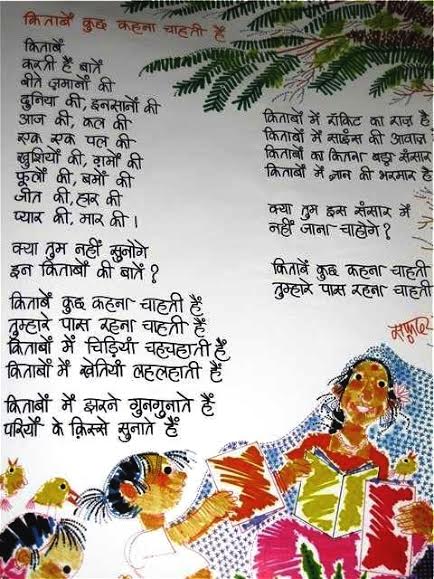 किताबें कुछ कहना चाहती हैं
किताबें
करती हैं बातें
बीते ज़मानों की
दुनिया की, इनसानों की
आज की, कल की
एक एक पल की
खुशियों की, ग़मों की
फूलों की, बमों की
जीत की, हार की
प्यार की, मार की।
क्या तुम नहीं सुनोगे
इन किताबों की बातें?
किताबें कुछ कहना चाहती हैं
तुम्हारे पास रहना चाहती हैं
किताबों में चिड़ियाँ चहचहाती हैं
किताबों में खेतियाँ लहलहाती हैं
किताबों में झरने गुनगुनाते हैं
परियों के क़िस्से सुनाते हैं
किताबों में रॉकिट का राज़ है
किताबों में साइंस की आवाज़ है
किताबों का कितना बड़ा संसार
किताबों में ज्ञान की भरमार है
क्या तुम इस संसार में
नहीं जाना चाहोगे?
किताबें कुछ कहना चाहती
तुम्हारे पास रहना चाहती